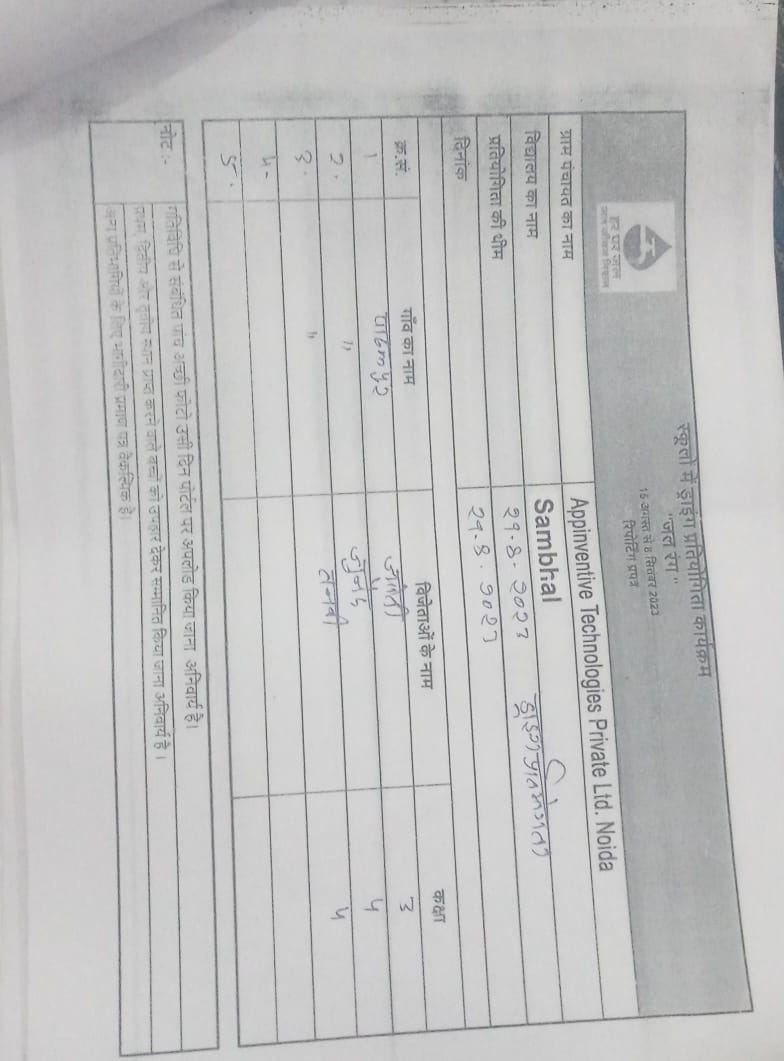 हर घर जल
जल जीवन मिशन
स्कूलों में ड्राइंग प्रतियोगिता कार्यक्रम
"जल रंग"
15 अगस्त से 8 सितंबर 2023
रिपोर्टिंग प्रपत्र
Appinventive Technologies Private Ltd. Noida
ग्राम पंचायत का नाम Sambhal
विद्यालय का नाम २९.8.२०२३ ड्राइंग प्रतियोगिता
प्रतियोगिता की थीम २९.8.२०२३
दिनांक
क्र.सं. गाँव का नाम विजेताओं के नाम कक्षा
1 3
2. " जुनैद 4
3. " 4
4-
5.
नोट :- गतिविधि से संबंधित पांच अच्छी फोटो उसी दिन पोर्टल पर अपलोड किया जाना अनिवार्य है।
प्रथम, द्वितीय और तृतीय स्थान प्राप्त करने वाले बच्चों को उपहार देकर सम्मानित किया जाना अनिवार्य है।
अन्य प्रतिभागियों के लिए भागीदारी प्रमाण पत्र वैकल्पिक है।